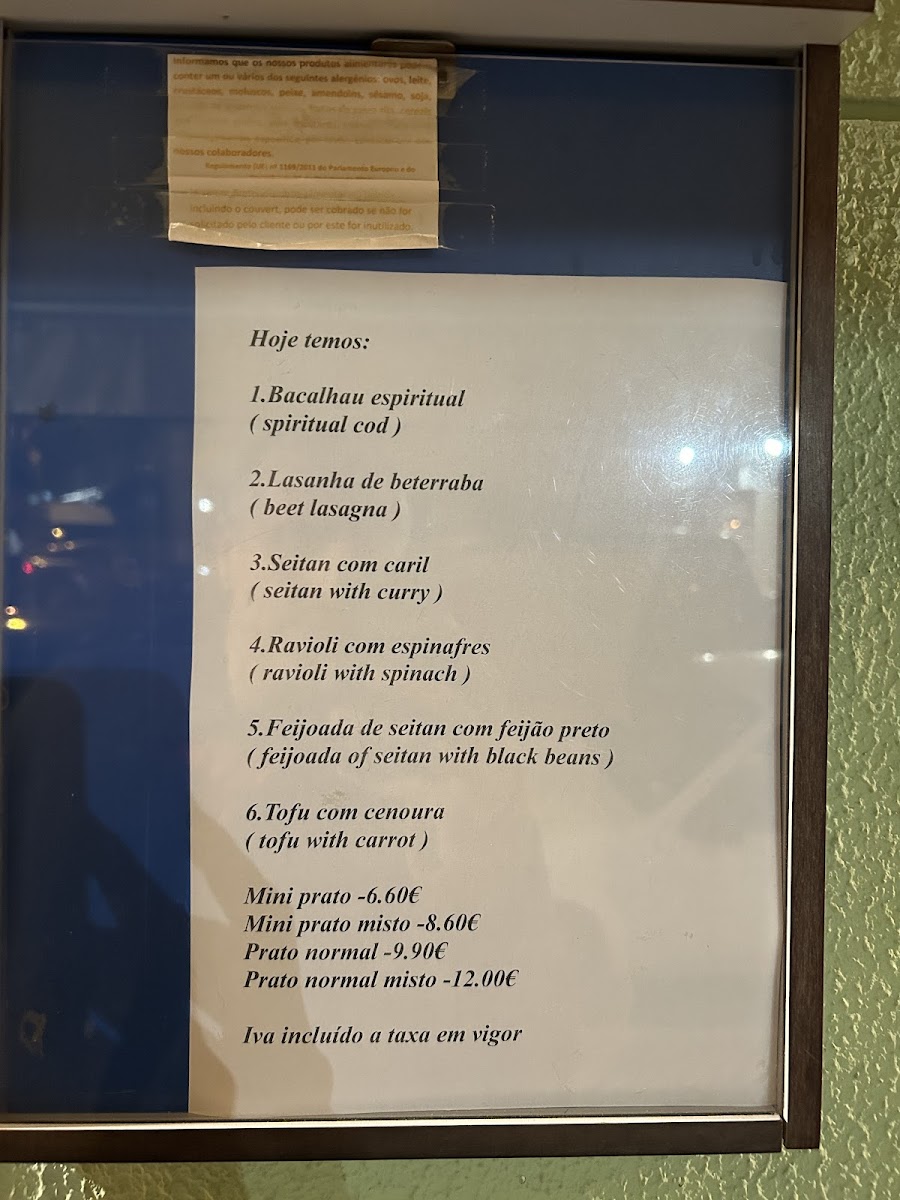 Informamos que os nossos produtos alimentares podem
conter um ou vários dos seguintes alergénios: ovos, leite,
crustáceos, moluscos, peixe, amendoins, sésamo, soja,
nossos colaboradores.
Regulamento (UE) nº 1169/2011 do Parlamento Europeu e do
incluindo o couvert, pode ser cobrado se não for
solicitado pelo cliente ou por este for inutilizado.
Hoje temos:
1.Bacalhau espiritual
( spiritual cod )
2.Lasanha de beterraba
( beet lasagna )
3.Seitan com caril
( seitan with curry )
4.Ravioli com espinafres
( ravioli with spinach )
5.Feijoada de seitan com feijão preto
( feijoada of seitan with black beans )
6.Tofu com cenoura
( tofu with carrot )
Mini prato -6.60€
Mini prato misto -8.60€
Prato normal -9.90€
Prato normal misto -12.00€
Iva incluído a taxa em vigor